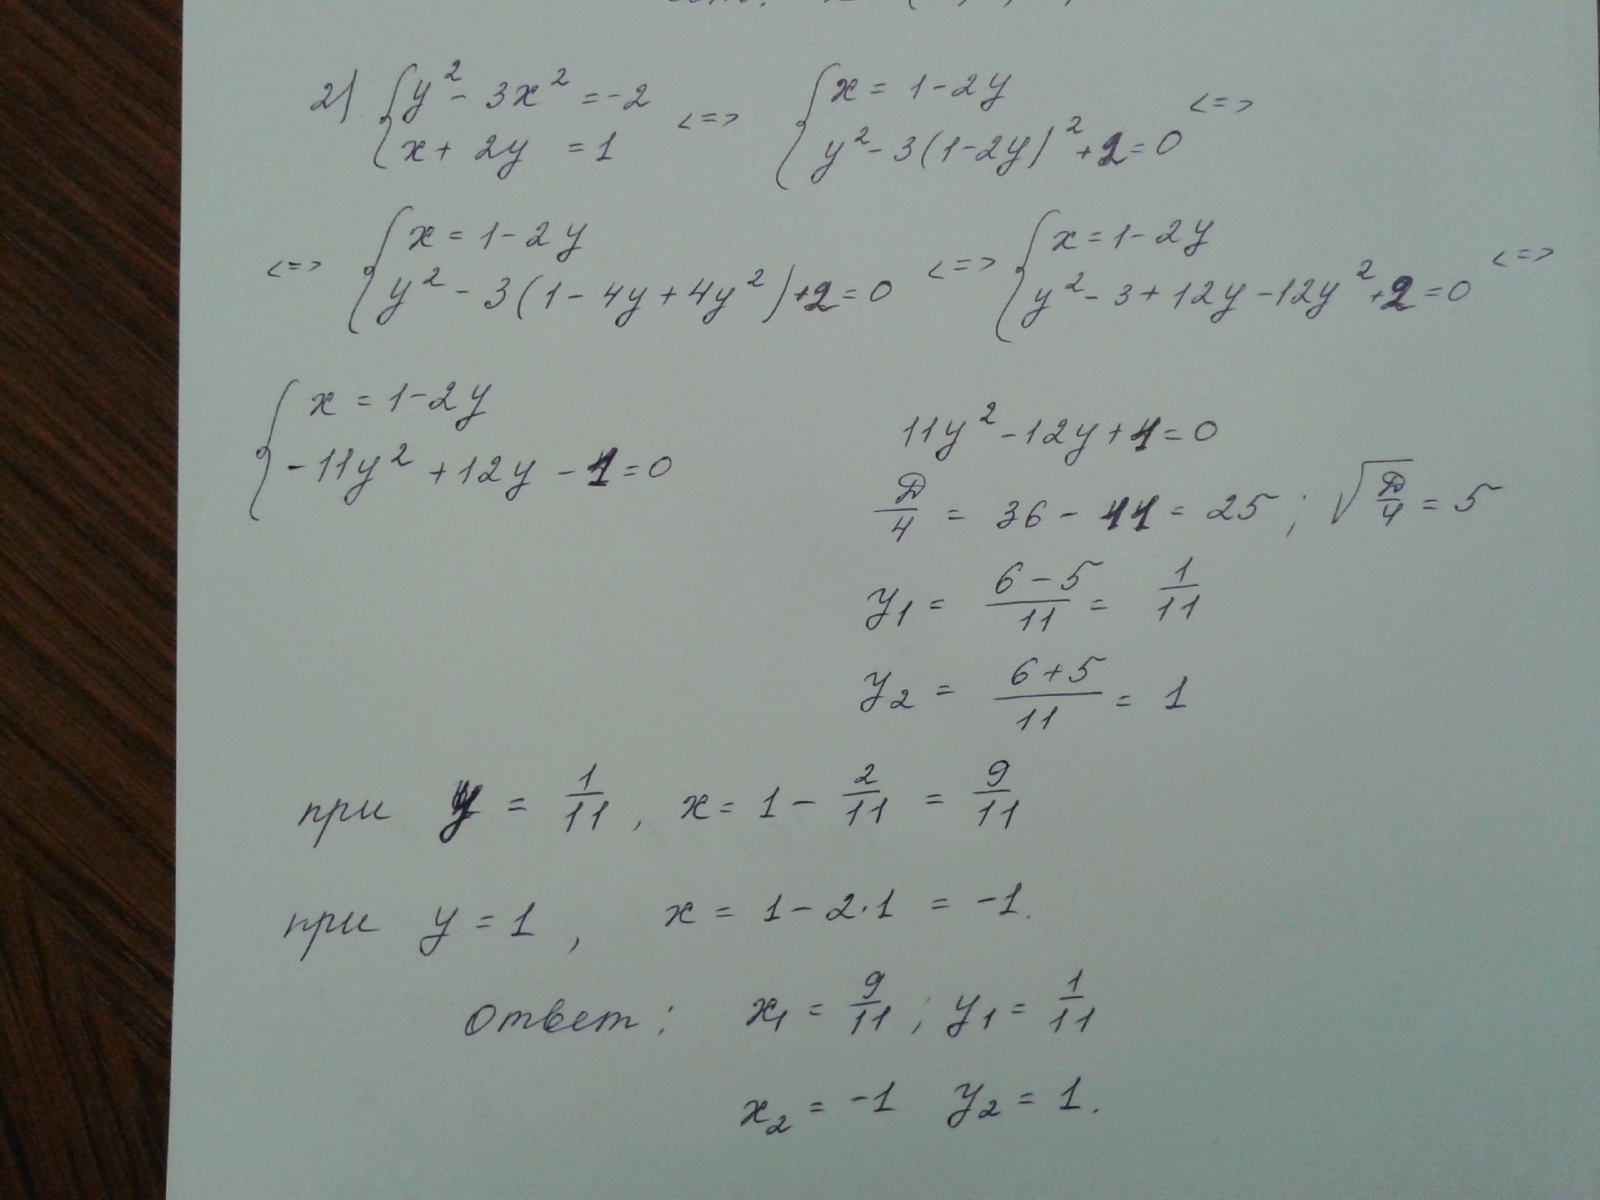 2) { y² - 3x² = -2 <=> { x = 1 - 2y <=>
x + 2y = 1 y² - 3(1-2y)² + 2 = 0
<=> { x = 1 - 2y <=> { x = 1 - 2y <=>
y² - 3(1 - 4y + 4y²) + 2 = 0 y² - 3 + 12y - 12y² + 2 = 0
{ x = 1 - 2y
-11y² + 12y - 1 = 0
11y² - 12y + 1 = 0
D/4 = 36 - 11 = 25 ; √(D/4) = 5
y₁ = (6 - 5)/11 = 1/11
y₂ = (6 + 5)/11 = 1
при y = 1/11 , x = 1 - 2/11 = 9/11
при y = 1 , x = 1 - 2·1 = -1.
Ответ : x₁ = 9/11 ; y₁ = 1/11
x₂ = -1 y₂ = 1.